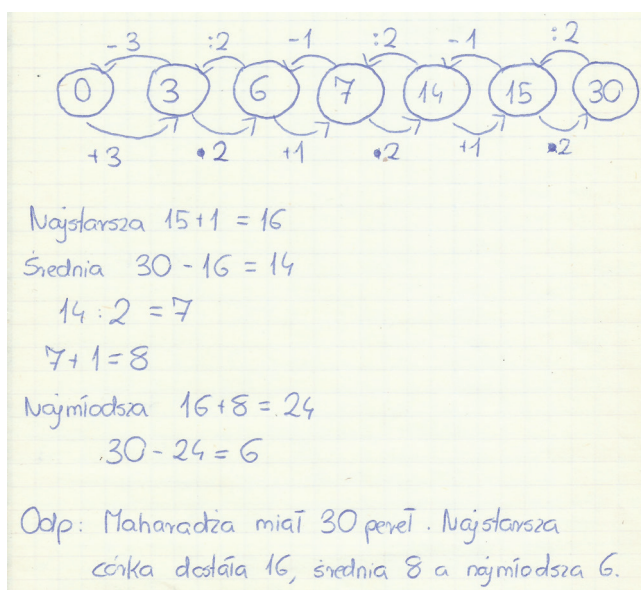 -3 :2 -1 :2 -1 :2
0 3 6 7 14 15 30
+3 •2 +1 •2 +1 •2
Najstarsza 15+1 = 16
Średnia 30 - 16 = 14
14 : 2 = 7
7+1 = 8
Najmłodsza 16+8 = 24
30 - 24 = 6
Odp: Maharadża miał 30 pereł. Najstarsza
córka dostała 16, średnia 8 a najmłodsza 6.